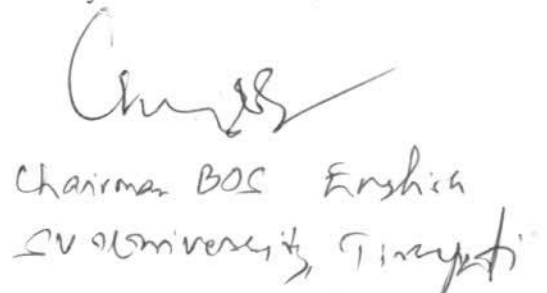 Chairman BOS English
SV University, Tirupati